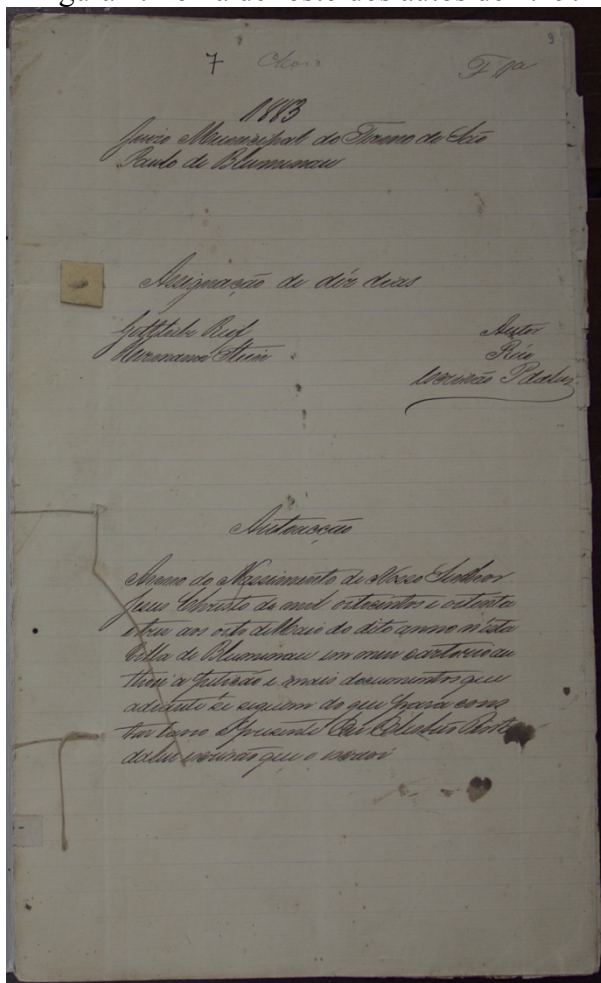 7
9
1883
Juizo Municipal do Termo de São
Paulo de Blumenau
Assignação de déz dias
Gottlieb Reif Autor
Hermann Stein Réo
Escrivão P daluz
Autoacção
Anno do Nassimento de Nosso Senhor
Jesus Christo de mil oitocentos e oitenta
e tres aos oito de Maio do dito anno n'esta
Villa de Blumenau em meu cartorio au
thoei a petição e mais documentos que
adiante se seguem do que para cons
tar lavro o presente Eu
daluz escrivão que o escrevi